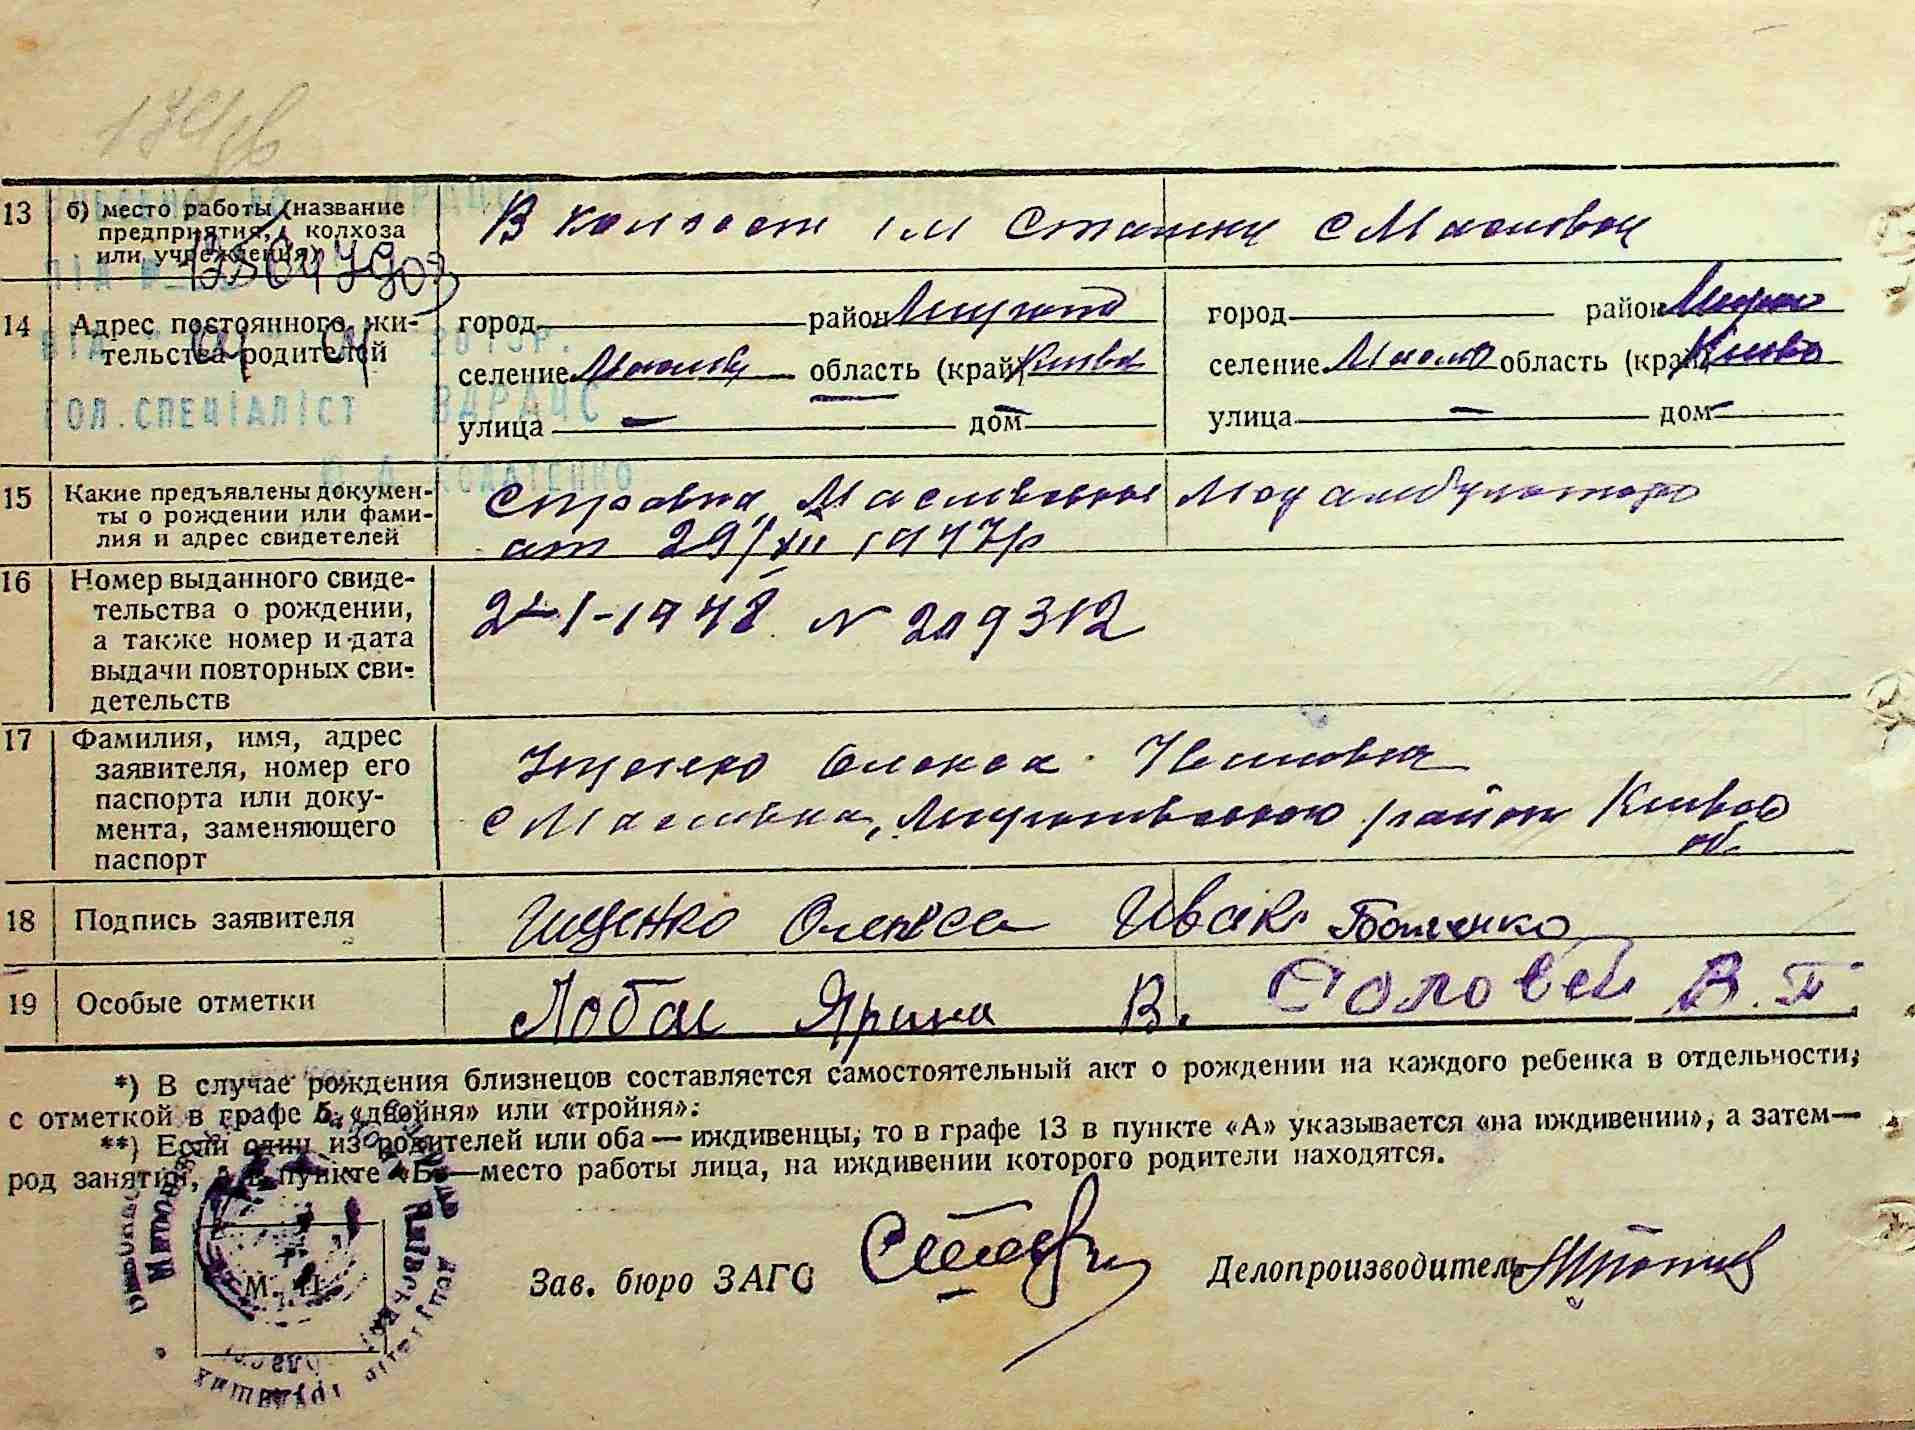 13 б) место работы (название предприятия, колхоза или учреждения)
В колгоспі ім Сталіна с Маслівки
14 Адрес постоянного жительства родителей
город район Мирон
селение Маслівка область (край) Київська
улица — дом —
город район Мирон
селение Маслів область (край) Київ
улица — дом —
ГОЛ.СПЕЦІАЛІСТ ВДРАЦС
15 Какие предъявлены документы о рождении или фамилия и адрес свидетелей
Справка Маслівської
от 29/XII 1947р
16 Номер выданного свидетельства о рождении, а также номер и дата выдачи повторных свидетельств
2-I-1948 N 209312
17 Фамилия, имя, адрес заявителя, номер его паспорта или документа, заменяющего паспорт
Іщенко Олекса
с Маслівка, Миронівського район Київсько
об.
18 Подпись заявителя
Ищенко Олекса Иван Боженко
19 Особые отметки
Лобас Ярина В. Соловей В.П.
*) В случае рождения близнецов составляется самостоятельный акт о рождении на каждого ребенка в отдельности,
с отметкой в графе 5 «двойня» или «тройня».
**) Если один из родителей или оба — иждивенцы, то в графе 13 в пункте «А» указывается «на иждивении», а затем—
род занятия, а в пункте «Б»—место работы лица, на иждивении которого родители находятся.
М. П.
Зав. бюро ЗАГС Делопроизводитель